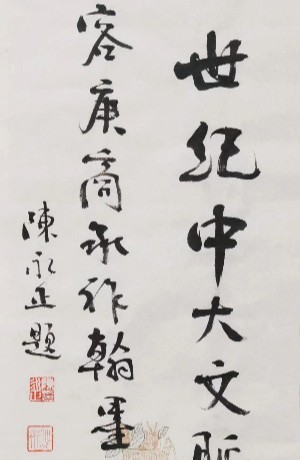 世纪中大文脈
容庚商承祚翰墨
陳永正題